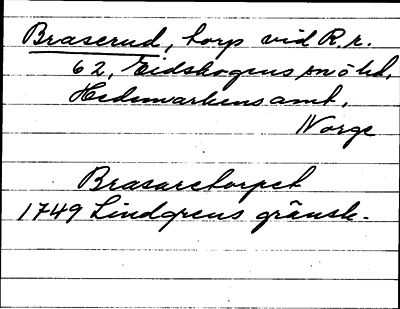 Braserud, torp vid R. r.
62, Eidskogens sn ö hd,
Hedemarkens amt,
Norge
Brasaretorpet
1749 Lindgrens gränsk.